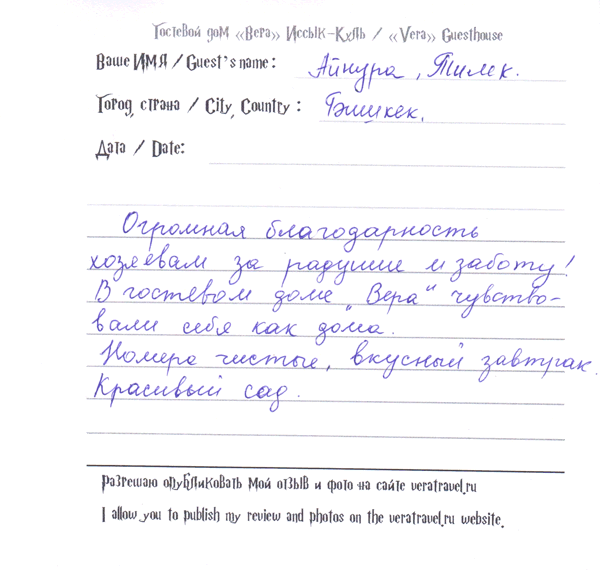 Гостевой дом «Вера» Иссык-Куль / «Vera» Guesthouse
Ваше ИМЯ / Guest's name: Айнура, Тилек.
Город, страна / City, Country: Бишкек.
Дата / Date:
Огромная благодарность
хозяевам за радушие и заботу!
В гостевом доме „Вера“ чувство-
вали себя как дома.
Номера чистые, вкусный завтрак.
Красивый сад.
Разрешаю опубликовать мой отзыв и фото на сайте veratravel.ru
I allow you to publish my review and photos on the veratravel.ru website.